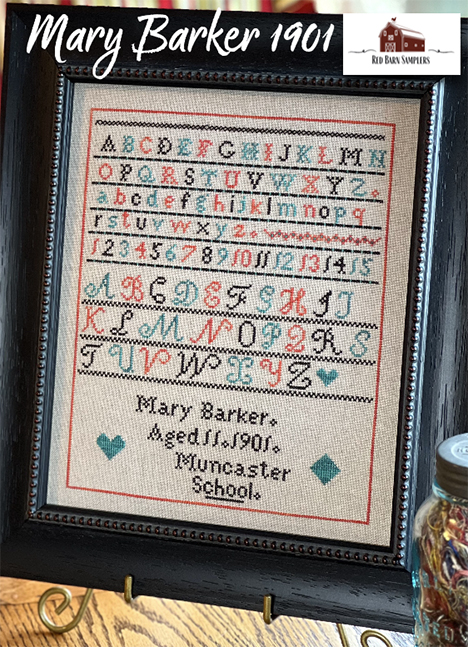 Mary Barker 1901
RED BARN SAMPLERS
ABCDEFGHIJKLMN
OPQRSTUVWXYZ.
abcdefghijklmnopq
rstuvwxyz.
1 2 3 4 5 6 7 8 9 10 11 12 13 14 15
ABCDEFGHIJ
KLMNOPQRS
TUVWXYZ
Mary Barker.
Aged 11. 1901.
Muncaster
School.